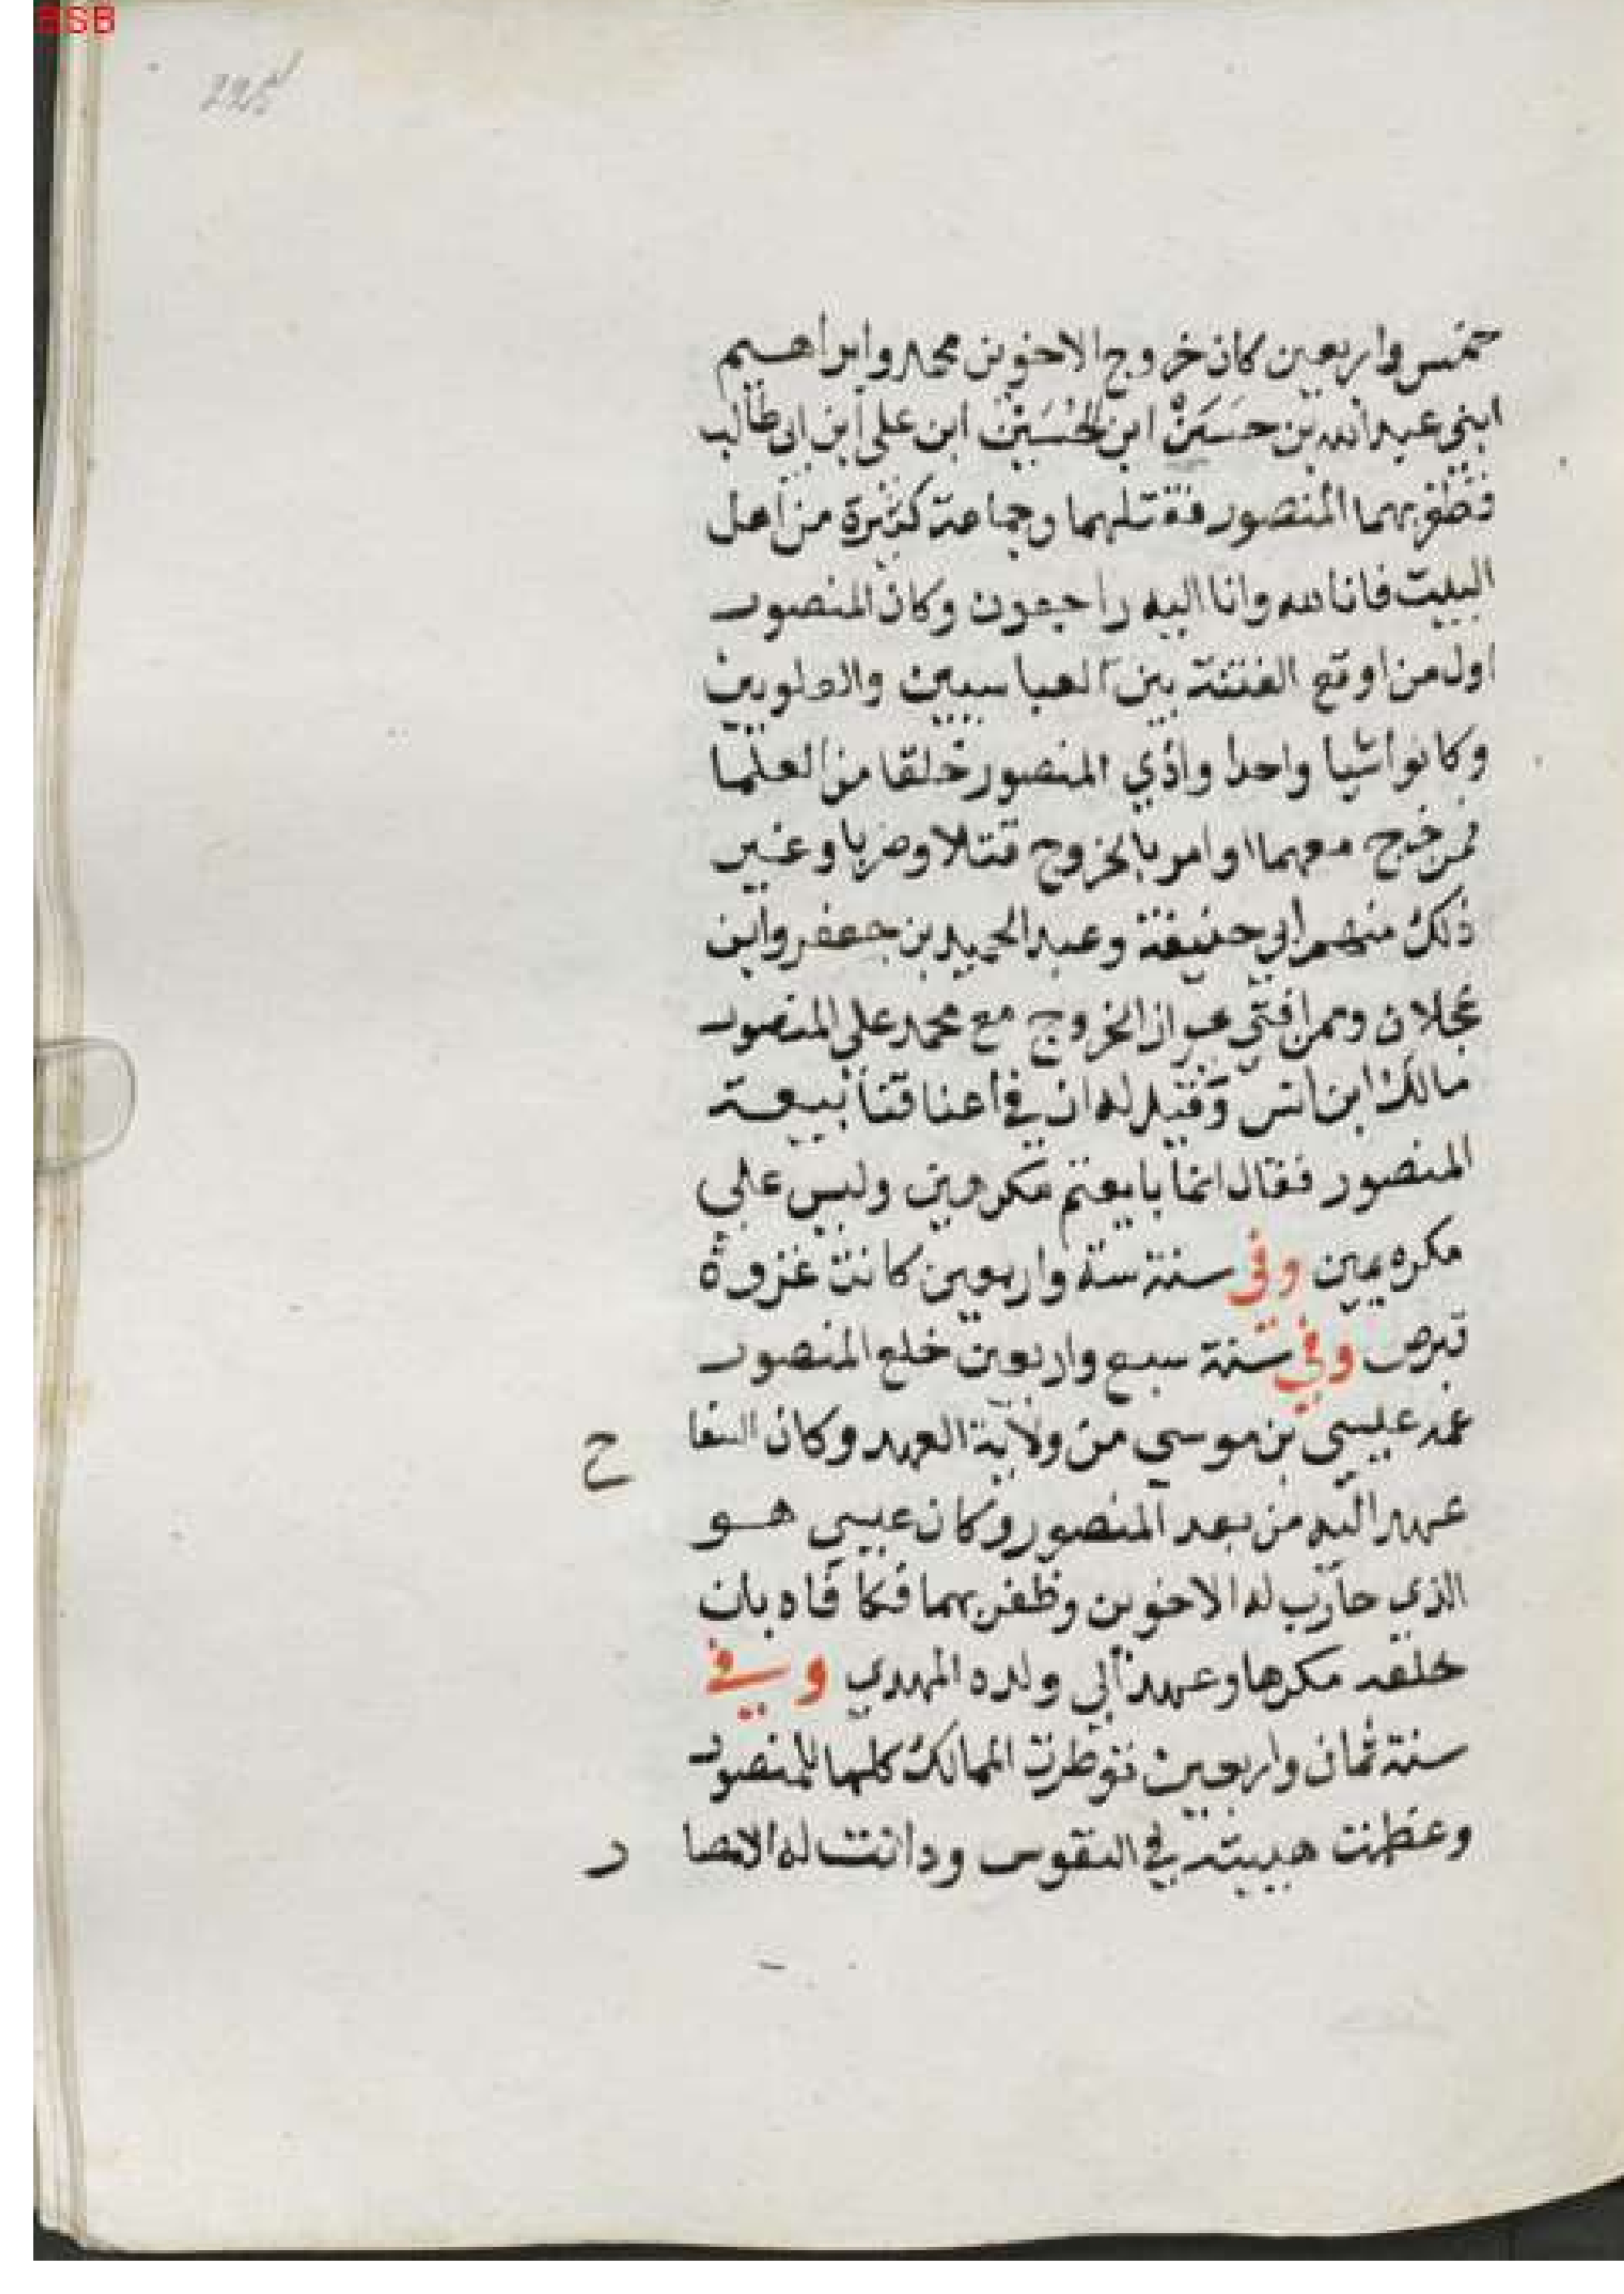 BSB
225
خمس واربعين كان خروج الاخوين محمد وابراهيم
ابني عبد الله بن حسن ابن الحسين ابن على ابن ابى طالب
فظفر بهما المنصور فقتلهما وجماعة كثيرة من اهل
البيت فانا لله وانا اليه راجعون وكان المنصور
اول من اوقع الفتنة بين العباسيين والعلويين
وكانوا شيا واحدا واذي المنصور خلقا من العلما
ممن خرج معهما او امر بالخروج قتلا وضربا وغير
ذلك منهم ابي حنيفة وعبد الحميد بن جعفر وابن
عجلان وممن افتى بجواز الخروج مع محمد علي المنصور
مالك ابن انس وقيل له ان في اعناقنا بيعة
المنصور فقال انما بايعتم مكرهين وليس علي
مكره يمين وفى سنة ستة واربعين كانت غزوة
قبرص وفي سنة سبع واربعين خلع المنصور
عمه عيسي بن موسي من ولاية العهد وكان السفاح
عهد اليه من بعد المنصور وكان عيسي هو
الذي حارب له الاخوين وظفر بهما فكافاه بان
خلعه مكرها وعهد الي ولده المهدي وفي
سنة ثمان واربعين توطرت الممالك كلها للمنصور
وعظمت هيبته في النفوس ودانت له الامصار